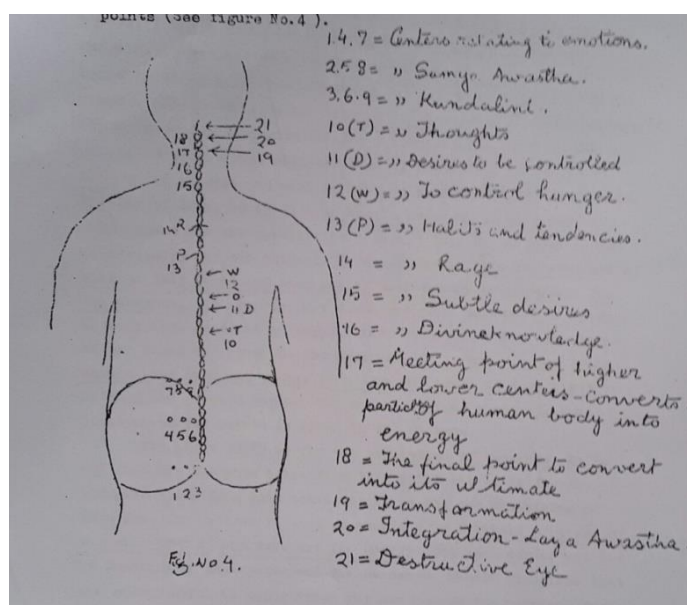 points (See figure No.4 ).
1.4.7 = Centers relating to emotions.
2.5 8 = " Samya Awastha.
3.6.9 = " Kundalini.
10(T) = " Thoughts
11(D) = " Desires to be controlled
12(W) = " To control hunger.
13(P) = " Habits and tendencies.
14 = " Rage
15 = " Subtle desires
16 = " Divine knowledge.
17 = Meeting point of higher
and lower centers - converts
particles of human body into
energy
18 = The final point to convert
into its ultimate
19 = Transformation
20 = Integration - Laya Awastha
21 = Destructive Eye
1
21
18
20
17
19
16
15
14 R
P
13
W
12
11 D
T
10
789
456
123
Fig. No 4.